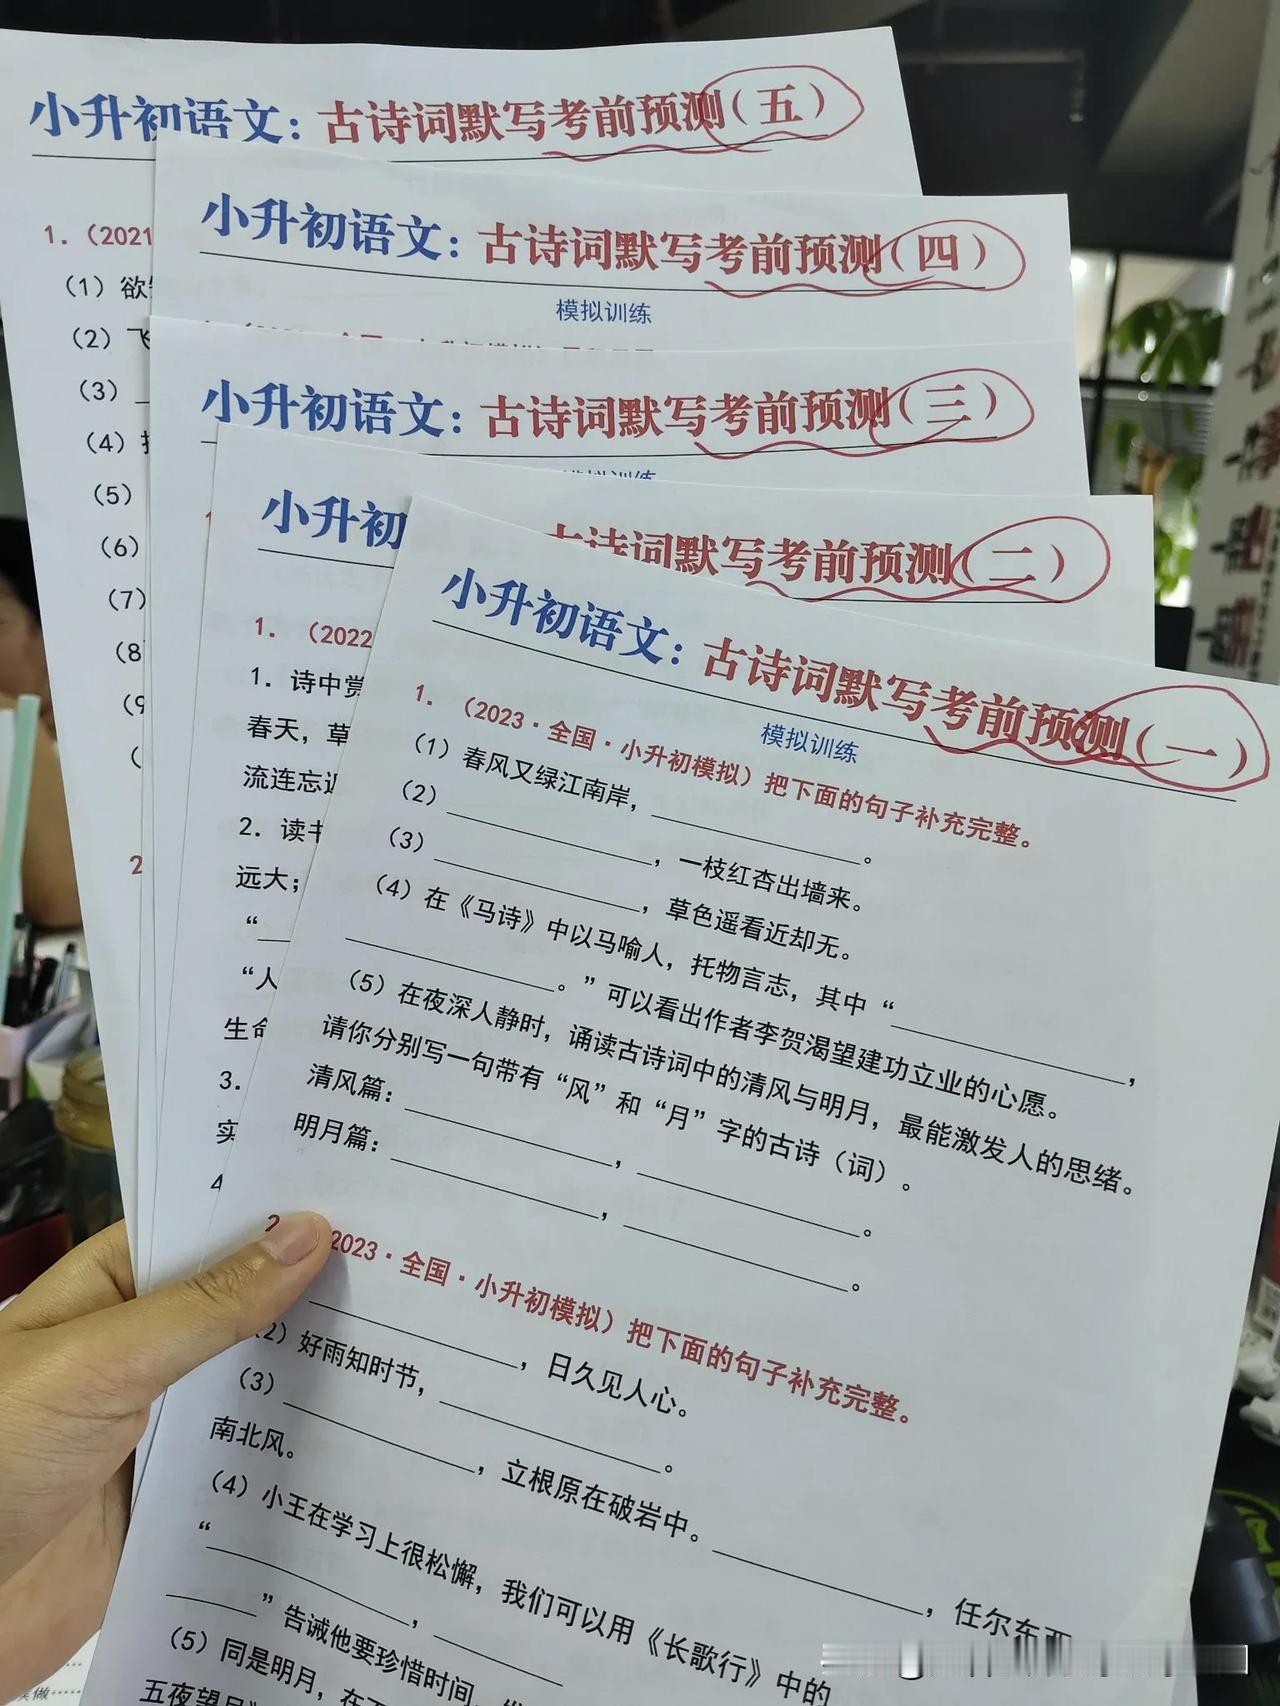 小升初语文：古诗词默写考前预测（五）
1.（2021
（1）欲
（2）飞
（3）
（4）
（5）
（6）
（7）
（8
（9
（
2
小升初语文：古诗词默写考前预测（四）
模拟训练
小升初语文：古诗词默写考前预测（三）
模拟训练
小升初 古诗词默写考前预测（二）
1.（2022
1. 诗中赏
春天，草
流连忘返
2. 读书
远大；
“
“人
生命
3.
实
4
小升初语文：古诗词默写考前预测（一）
模拟训练
1.（2023·全国·小升初模拟）把下面的句子补充完整。
（1）春风又绿江南岸，________。
（2）________，一枝红杏出墙来。
（3）________，草色遥看近却无。
（4）在《马诗》中以马喻人，托物言志，其中“________，
________。”可以看出作者李贺渴望建功立业的心愿。
（5）在夜深人静时，诵读古诗词中的清风与明月，最能激发人的思绪。
请你分别写一句带有“风”和“月”字的古诗（词）。
清风篇：________，________。
明月篇：________，________。
2 2023·全国·小升初模拟）把下面的句子补充完整。
________，日久见人心。
2）好雨知时节，________。
（3）________，立根原在破岩中。________，任尔东西
南北风。
（4）小王在学习上很松懈，我们可以用《长歌行》中的
“________，________
________”告诫他要珍惜时间，
（5）同是明月，在
五夜望月